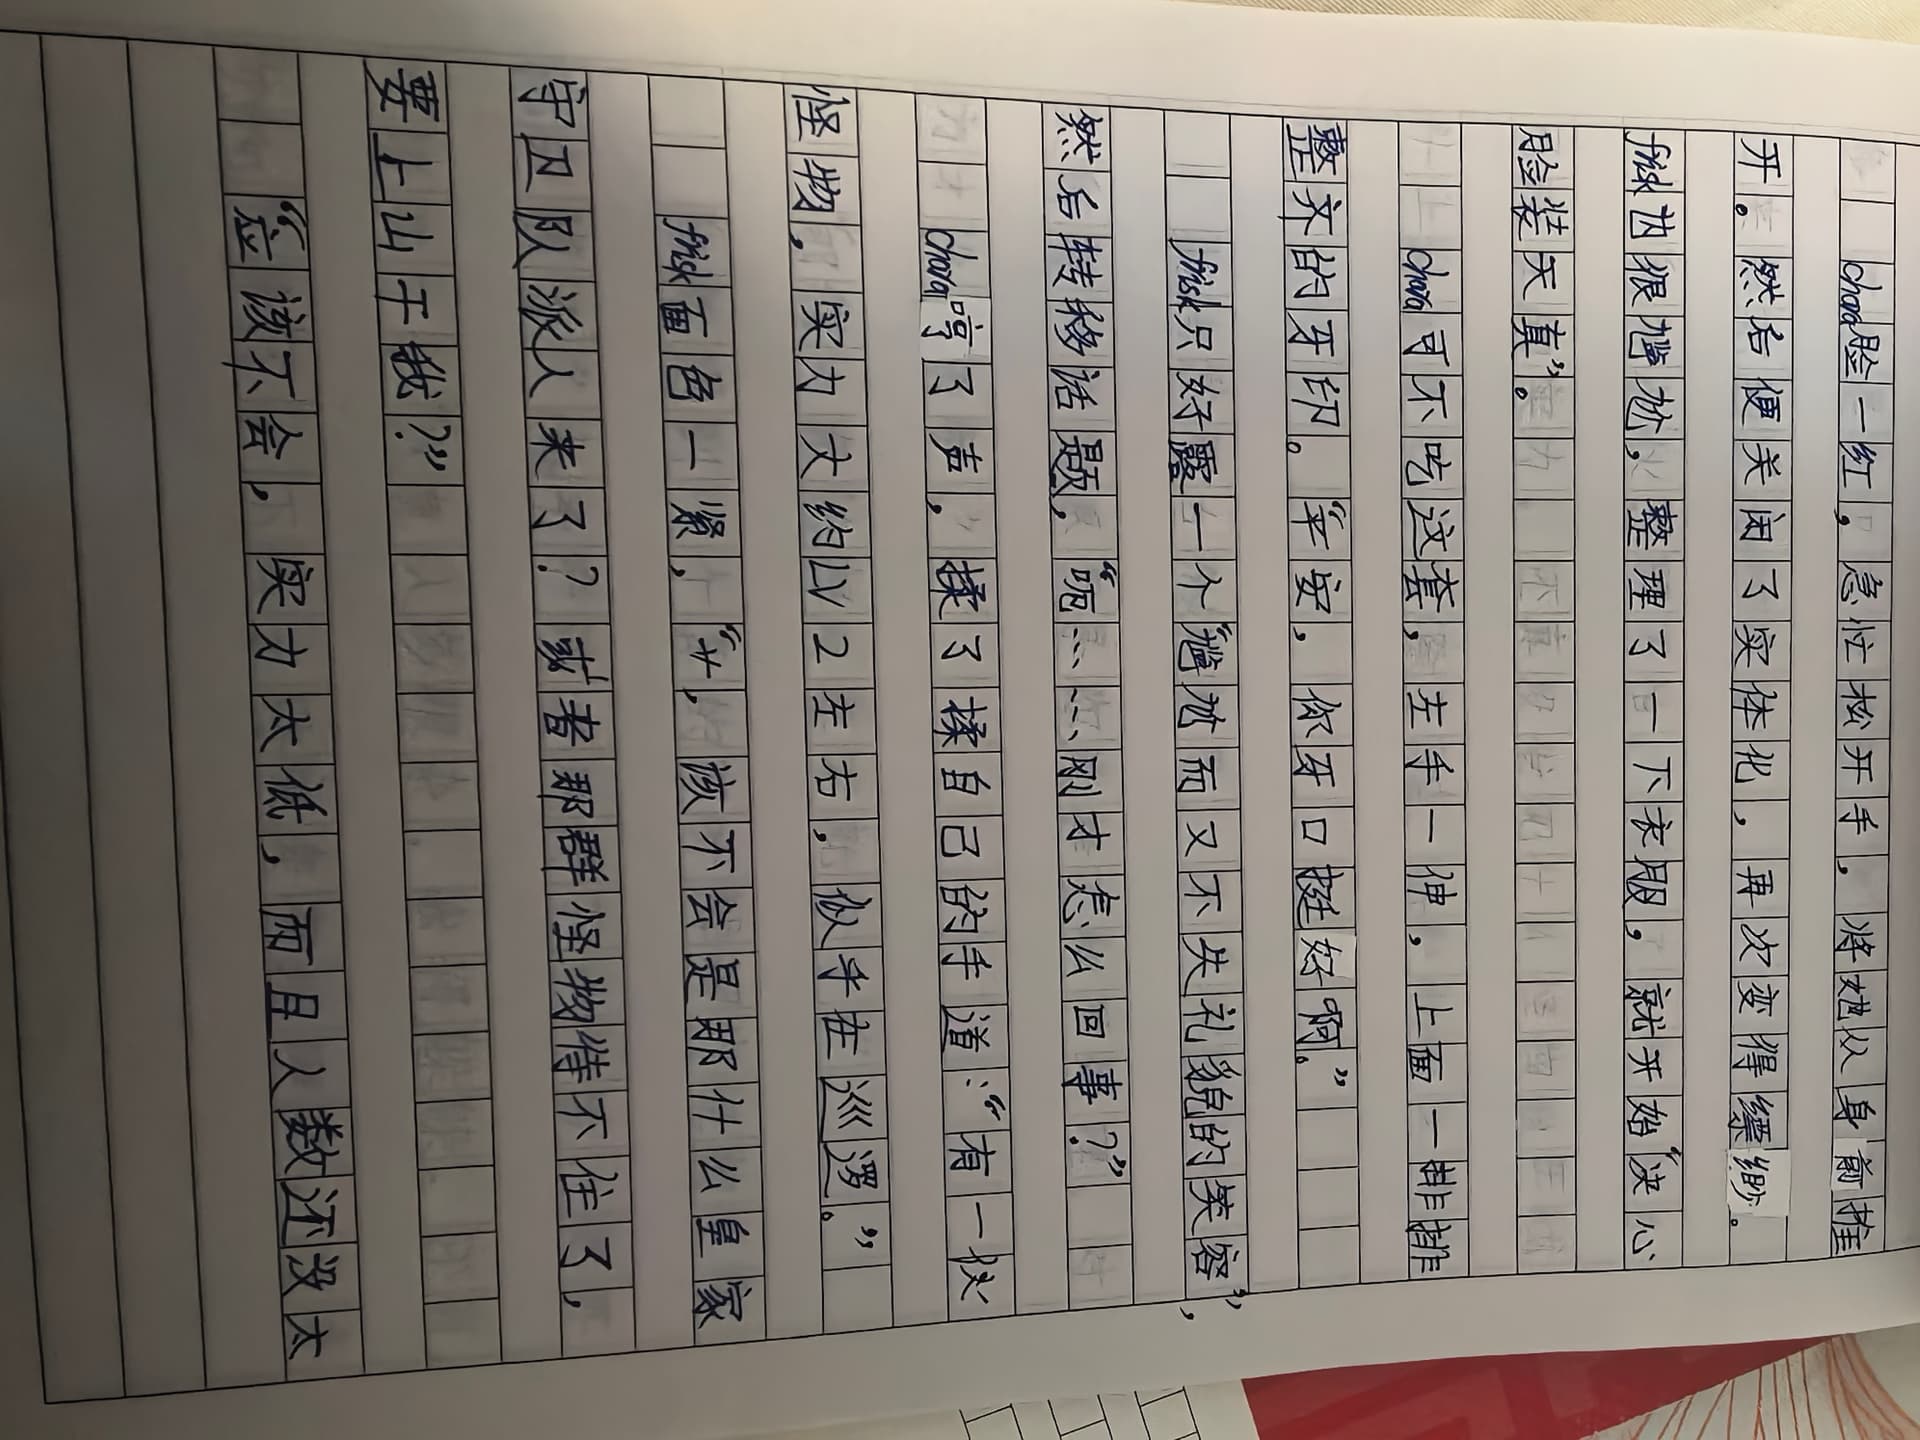 chara脸一红，急忙松开手，将她从身前推
开。然后便关闭了实体化，再次变得缥缈。
frisk也很尴尬，整理了一下衣服，就开始“决心
脸装天真”。
chara可不吃这套，左手一伸，上面一排排
整齐的牙印。“平安，你牙口挺好啊。”
frisk只好露一个“尴尬而又不失礼貌的笑容”，
然后转移话题，“呃……刚才怎么回事？”
chara哼了声，揉了揉自己的手道：“有一伙
怪物，实力大约LV2左右，似乎在巡逻。”
frisk面色一紧，“4，该不会是那什么皇家
守卫队派人来了？或者那群怪物待不住了，
要上山干我？”
“应该不会，实力太低，而且人数还没太